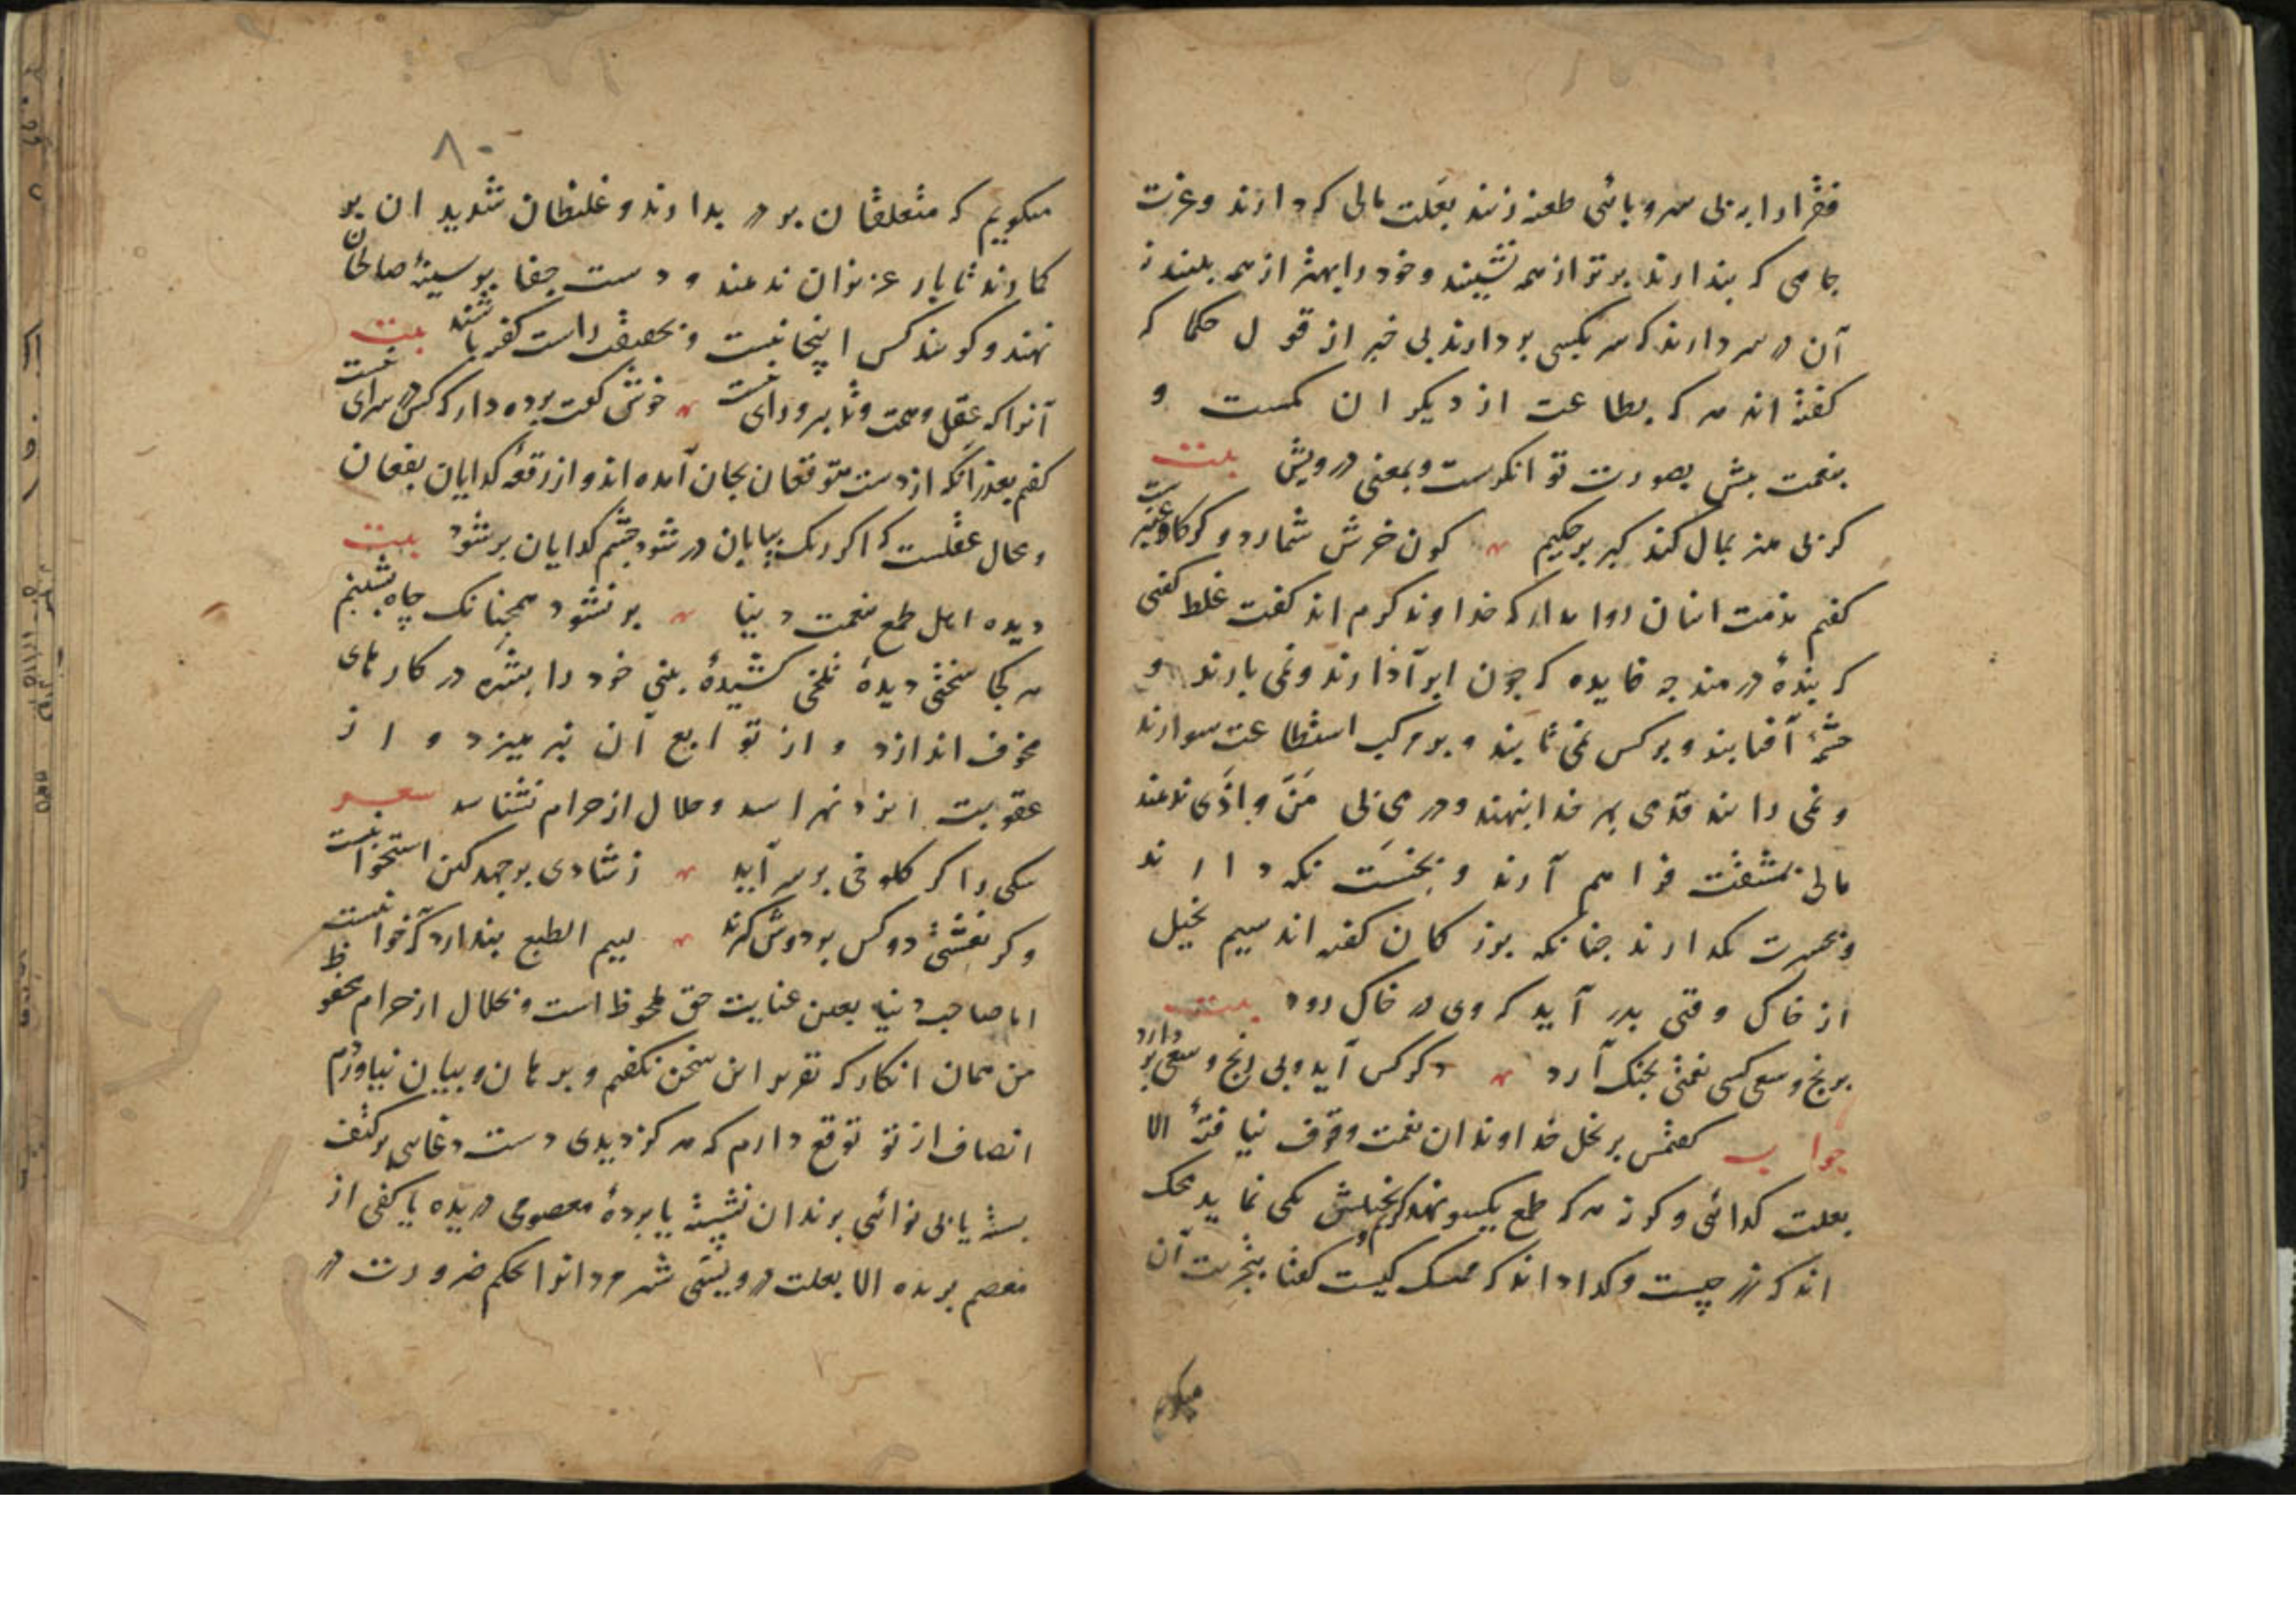 فقرا را به بی سر و پائی طعنه زنند بعلت مالی که دارند و عزت
جاهی که پندارند برتر از همه نشینند و خود را بهتر از همه بینند نه
آن در سر دارند که سر بکسی بر دارند بی خبر از قول حکما که
گفته اند هر که بطاعت از دیگران کمست و
بنعمت بیش بصورت توانگرست و بمعنی درویش بیت
گر بی هنر بمال کند کبر بر حکیم کون خرش شمار و گر گاو عنبرست
گفتم مذمت اینان روا مدار که خداوند کرم اند گفت غلط گفتی
که بندهٔ درمند چه فایده که چون ابر آذارند و نمی بارند و
چشمهٔ آفتابند و بر کس نمی تابند و بر مرکب استطاعت سوارند
و نمی رانند قدمی بهر خدا ننهند و درمی بی مَنّ و اذَی ندهند
مالی بمشقت فراهم آرند و بخسّت نگه دارند
و بحسرت بگذارند چنانکه بزرگان گفته اند سیم بخیل
از خاک وقتی بدر آید که وی در خاک رود بیت
برنج و سعی کسی نعمتی بچنگ آرد دگر کس آید و بی رنج و سعی بر دارد
جواب گفتمش بر بخل خداوندان نعمت وقوف نیافتهٔ الا
بعلت گدائی و گر نه هر که طمع یکسو نهد کریم و بخیلش یکی نماید محک
داند که زر چیست و گدا داند که ممسک کیست گفتا بتجربت آن
میگویم
۸۰
میگویم که متعلقان بر در بدارند و غلیظان شدید ان بر
گمارند تا بار عزیزان ندهند و دست جفا بر سینهٔ صالحان
نهند و گویند کس اینجا نیست و بحقیقت راست گفته باشند بیت
آنرا که عقل و همت و تدبیر و رای نیست خوش گفت پرده دار که کس در سرای نیست
گفتم بعذر آنکه از دست متوقعان بجان آمده اند و از رقعهٔ گدایان بفغان
و محال عقلست که اگر ریک بیابان در شود چشم گدایان پر شود بیت
دیده اهل طمع بنعمت دنیا پر نشود همچنانک چاه بشبنم
هر کجا سختی دیدهٔ تلخی کشیدهٔ بینی خود را بشره در کارهای
مخوف اندازد و از توابع آن نپرهیزد و از
عقوبت ایزد نهراسد و حلال از حرام نشناسد شعر
سگی را گر کلوخی بر سر آید ز شادی بر جهد کین استخوانیست
و گر نعشی دو کس بر دوش گیرند لییم الطبع پندارد که خوانیست
اما صاحب دنیا بعین عنایت حق ملحوظ است و بحلال از حرام محفوظ
من همان انگار که تقریر این سخن نگفتم و برهان و بیان نیاوردم
انصاف از تو توقع دارم که هرگز دیدی دست دغایی بر کتف
بسته یا بی نوائی بزندان نشسته یا پردهٔ معصومی دریده یا کفی از
معصم بریده الا بعلت درویشی شیر مردانرا بحکم ضرورت در